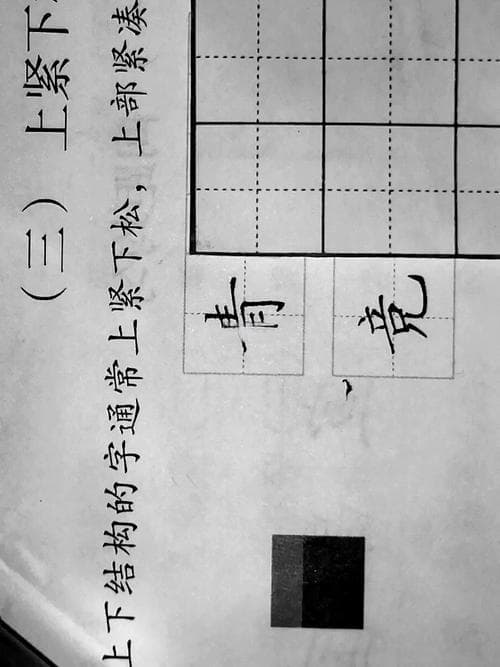 （三）上紧下
上下结构的字通常上紧下松，上部紧凑
青
竞